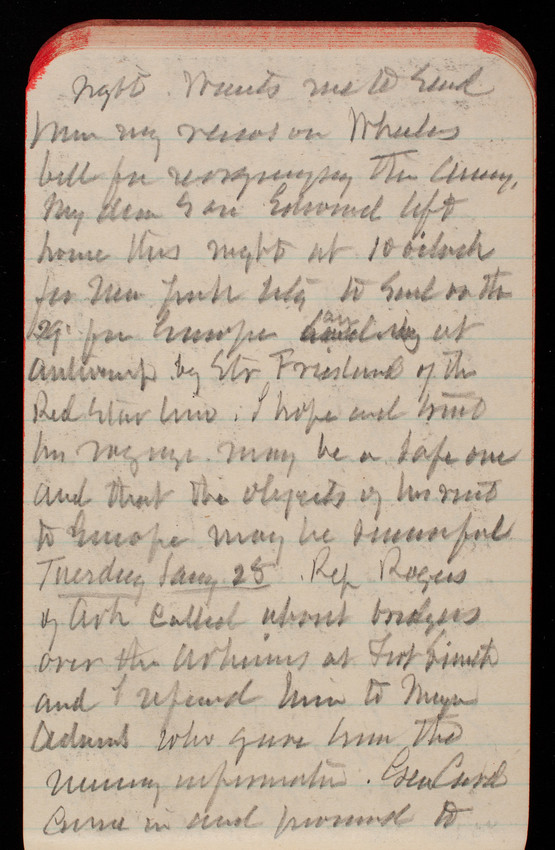 night. Wants me to send
him my views on Wheelers
bill for reorganizing the Army.
My dear son Edward left
home this night at 10 oclock
for New York City to sail on the
29 for Europe landing at
Antwerp by Str Friesland of the
Red Star Line. I hope and trust
his voyage may be a safe one
and that the objects of his visit
to Europe may be successful
Tuesday Jany 28. Rep Rogers
of Ark called about bridges
over the Arkansas at Fort Smith
and I referred him to Major
Adams who gave him the
necessary information. Genl
came in and promised to